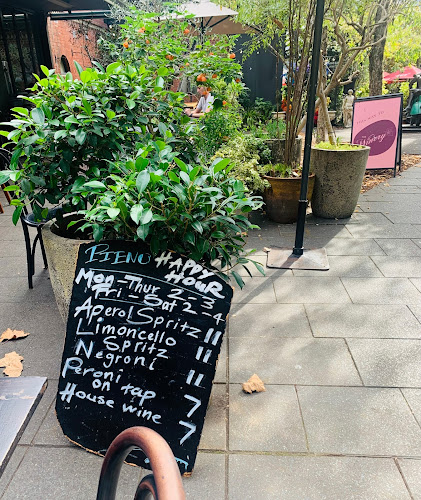 PIENO HAPPY
HOUR
Mon-Thur 2-3
Fri-Sat 2-4
Aperol Spritz 11
Limoncello
Spritz 11
Negroni 11
Peroni
on tap 7
House wine 7